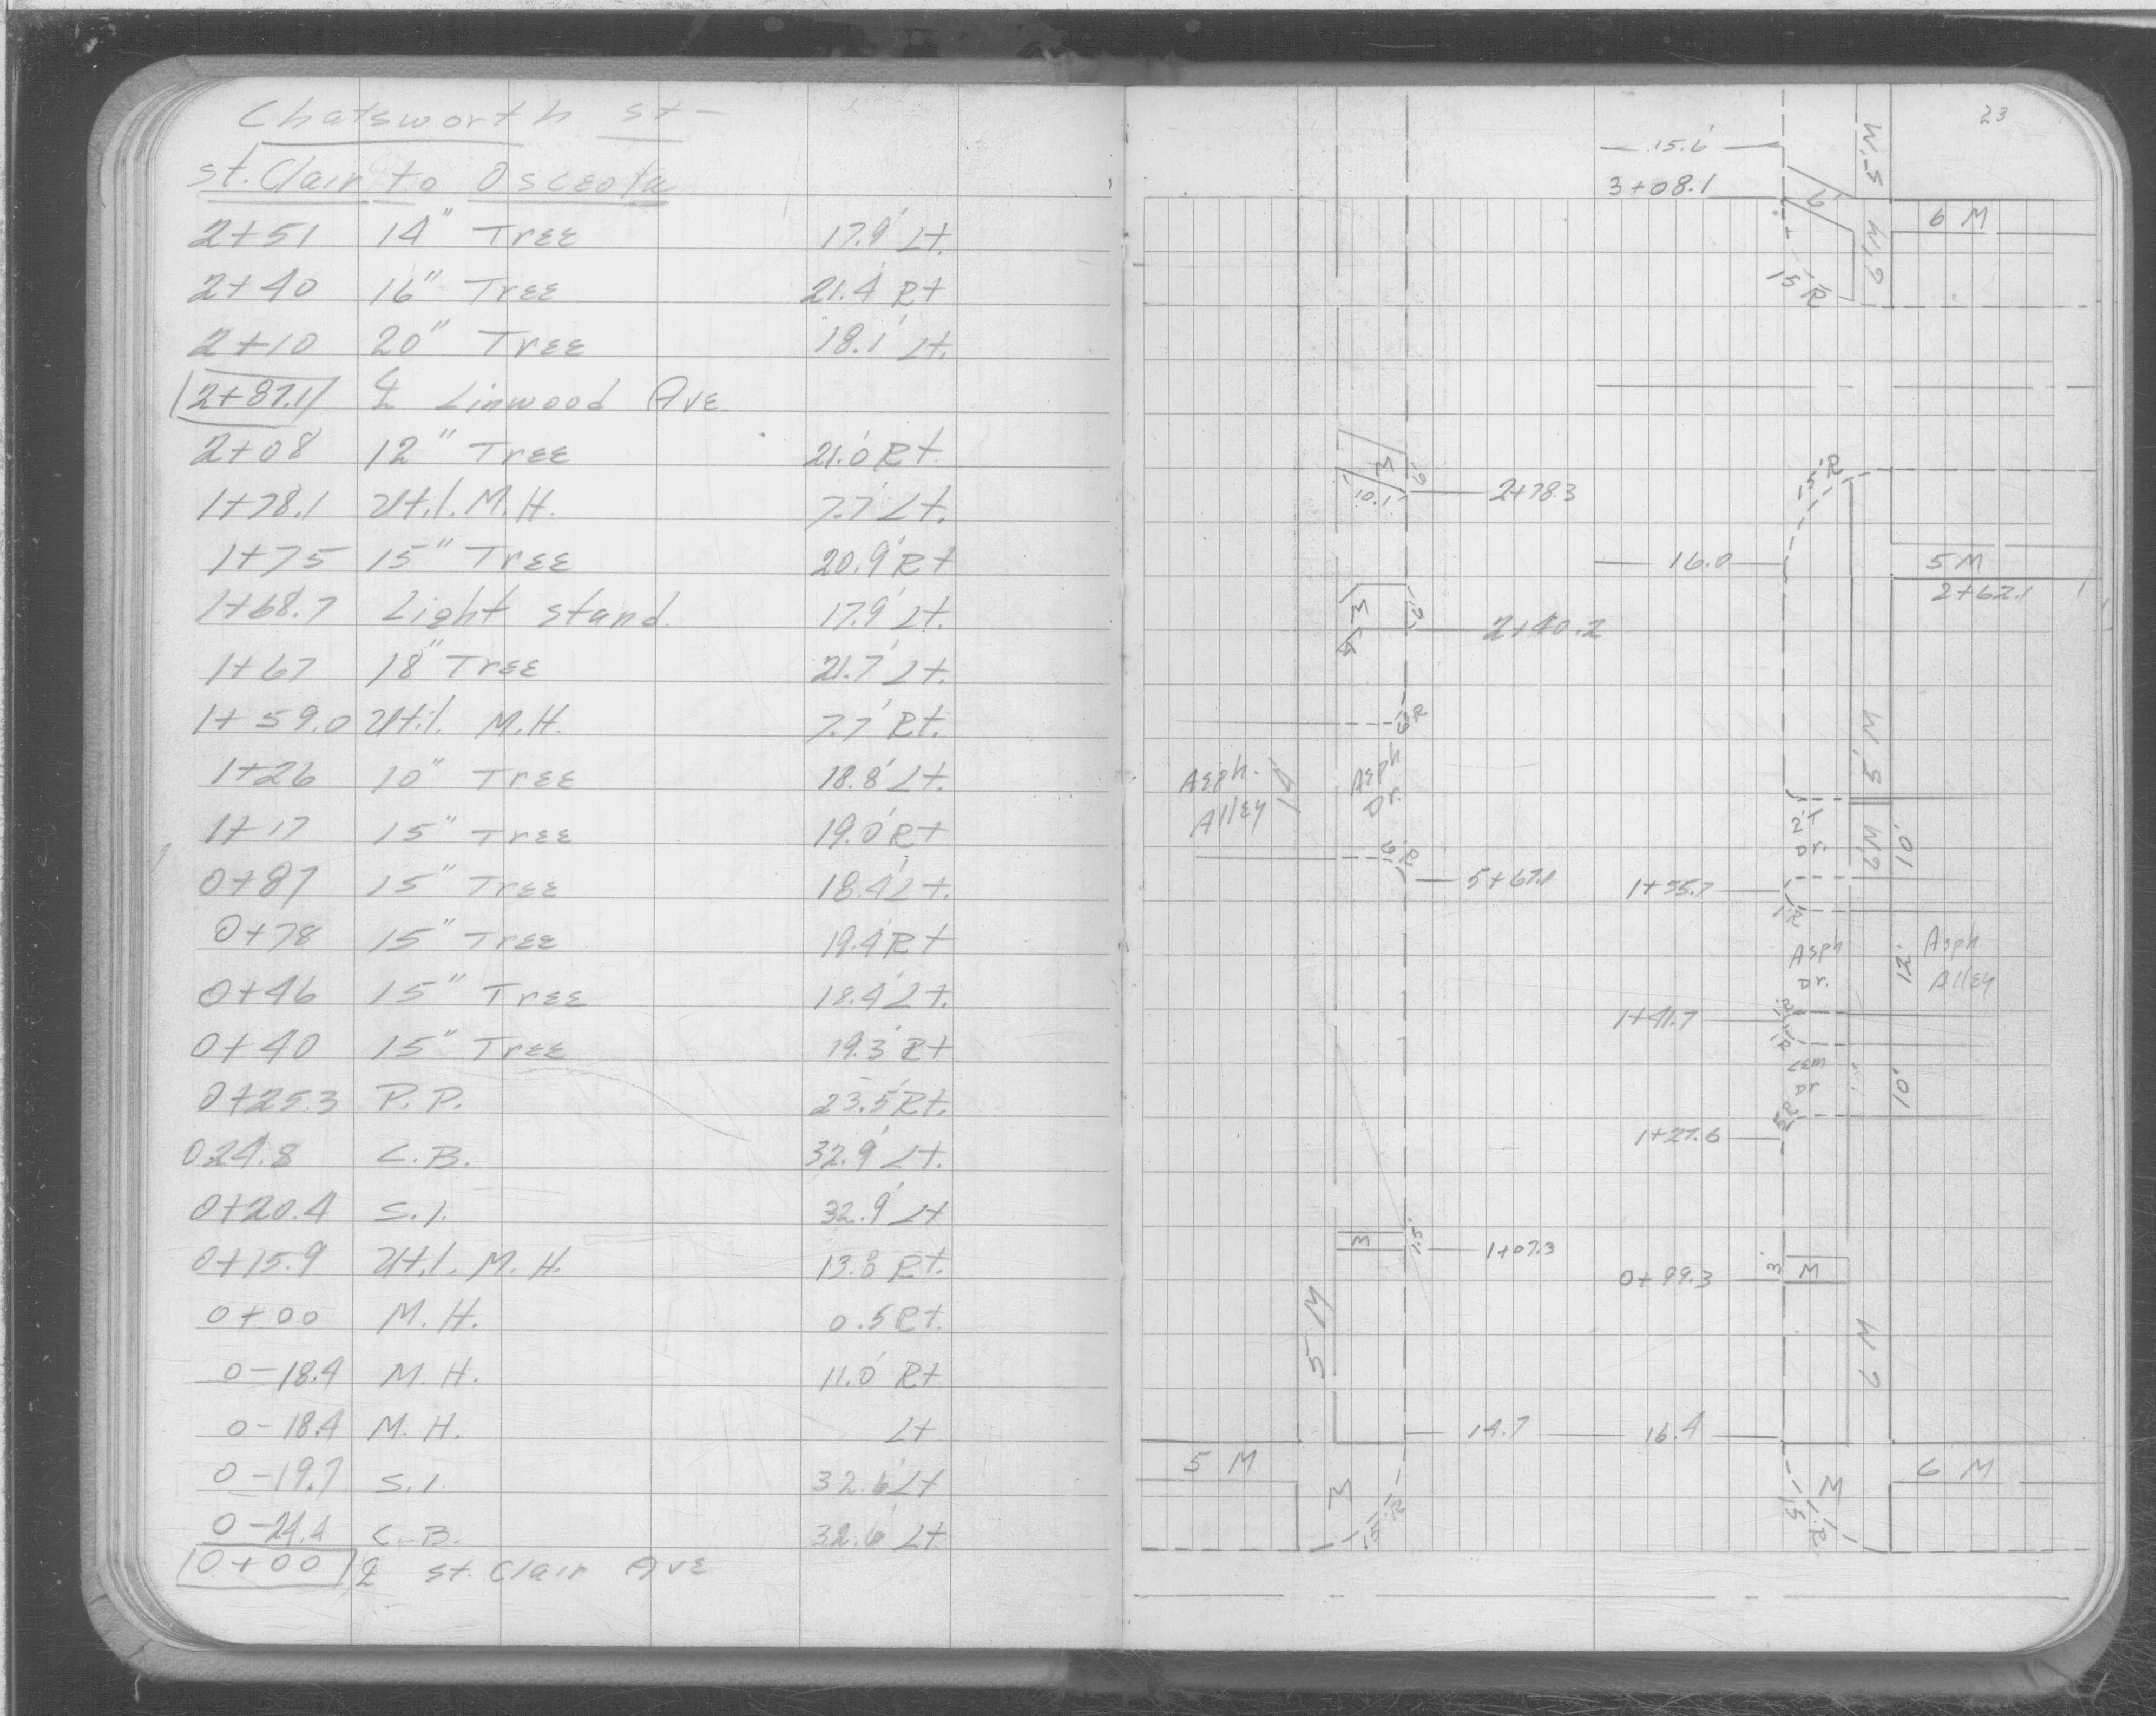 Chatsworth St-
St. Clair to Osceola
2+51 14" Tree 17.9' Lt.
2+40 16" Tree 21.4' Rt
2+10 20" Tree 18.1' Lt.
2+87.1 ℄ Linwood Ave
2+08 12" Tree 21.0' Rt.
1+78.1 Util. M.H. 7.7' Lt.
1+75 15" Tree 20.9' Rt
1+68.7 Light stand. 17.9' Lt.
1+67 18" Tree 21.7' Lt.
1+59.0 Util. M.H. 7.7' Rt.
1+26 10" Tree 18.8' Lt.
1+17 15" Tree 19.0' Rt
0+87 15" Tree 18.4' Lt.
0+78 15" Tree 19.4' Rt
0+46 15" Tree 18.4' Lt.
0+40 15" Tree 19.3' Rt
0+25.3 P.P. 23.5' Rt.
024.8 C.B. 32.9' Lt.
0+20.4 S.I. 32.9' Lt
0+15.9 Util. M.H. 13.8 Rt.
0+00 M.H. 0.5 Rt.
0-18.4 M.H. 11.0' Rt
0-18.4 M.H. Lt
0-19.7 S.I. 32.6' Lt
0-24.4 C.B. 32.6' Lt
0+00 ℄ St. Clair Ave
23
15.6'
5' M
3+08.1
6'
6' M
6 M
15' R
M
10.1'
6'
2+78.3
15' R
16.0
5 M
2+62.1
M
6'
2+40.2
6' R
5' M
Asph. Alley
14'
Asph Dr.
2T Dr.
6' M
10'
6' R
5+67.1
1+55.7
1' R
Asph Dr.
12'
Asph Alley
1+41.7
1' R
1' R
Cem Dr
10'
5' R
1+27.6
M
1.5'
1+07.3
0+99.3
3'
M
5 M
6 M
14.7
16.4
5 M
M
15' R
M
15' R
6 M